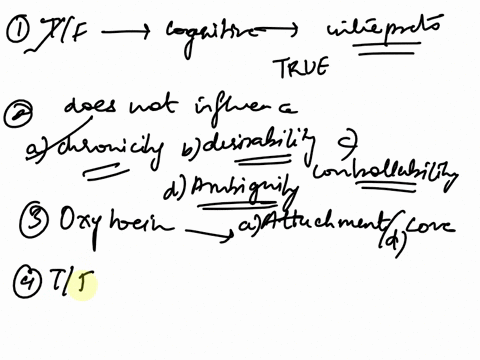 ① T/F → cognitive →
TRUE
② does not influence
a) chronicity b) desirability c)
controllability
d) Ambiguity
③ Oxytocin → a) Attachment/
d) care
④ T/F